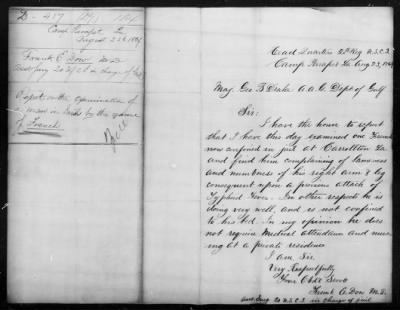 D - 417 (D.G.) 1864
Camp Parapet La
August 23d 1864
Frank E Dow M.D.
Asst Surg 20 U.S.C.I. in charge of Jail
Report on the examination of
a man in jail by the name
of French
Head Quarters 20th Reg U.S.C.I.
Camp Parapet La Aug 23, 1864
Maj Geo B Drake A.A.G. Dept of Gulf
Sir:
I have the honor to report
that I have this day examined one French
now confined in jail at Carrollton La
and find him complaining of lameness
and numbness of his right arm & leg
consequent upon a previous attack of
Typhoid Fever. In other respects he is
doing very well, and is not confined
to his bed. In my opinion he does
not require Medical attendance and nurs
ing at a private residence
I am Sir
Very Respectfully
Your Obdt Servt
Frank E. Dow M.D.
Asst Surg 20 U.S.C.I. in charge of jail